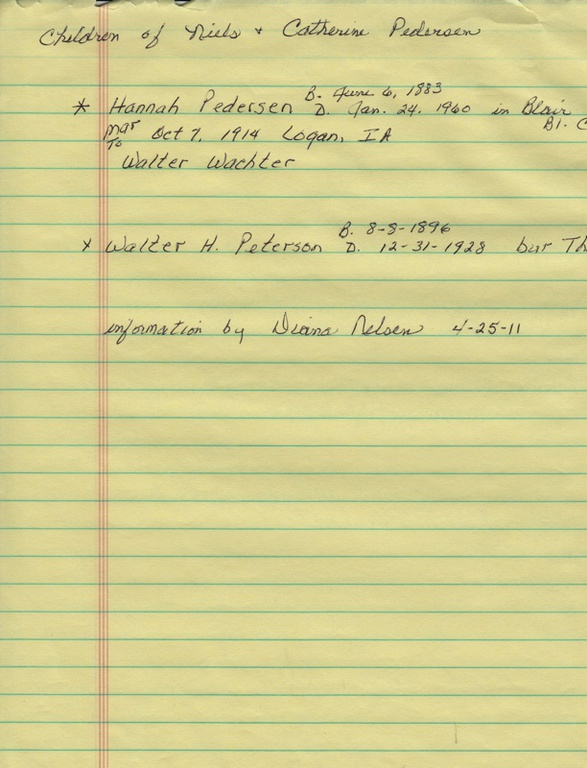 Children of Niels + Catherine Pedersen
B. June 6, 1883
* Hannah Pedersen D. Jan. 24. 1960 in Blair
Mar Oct 7, 1914 Logan, IA Bl. C
To
Walter Wachter
B. 8-8-1896
x Walter H. Peterson D. 12-31-1928 bur Th
information by Diana Nelsen 4-25-11